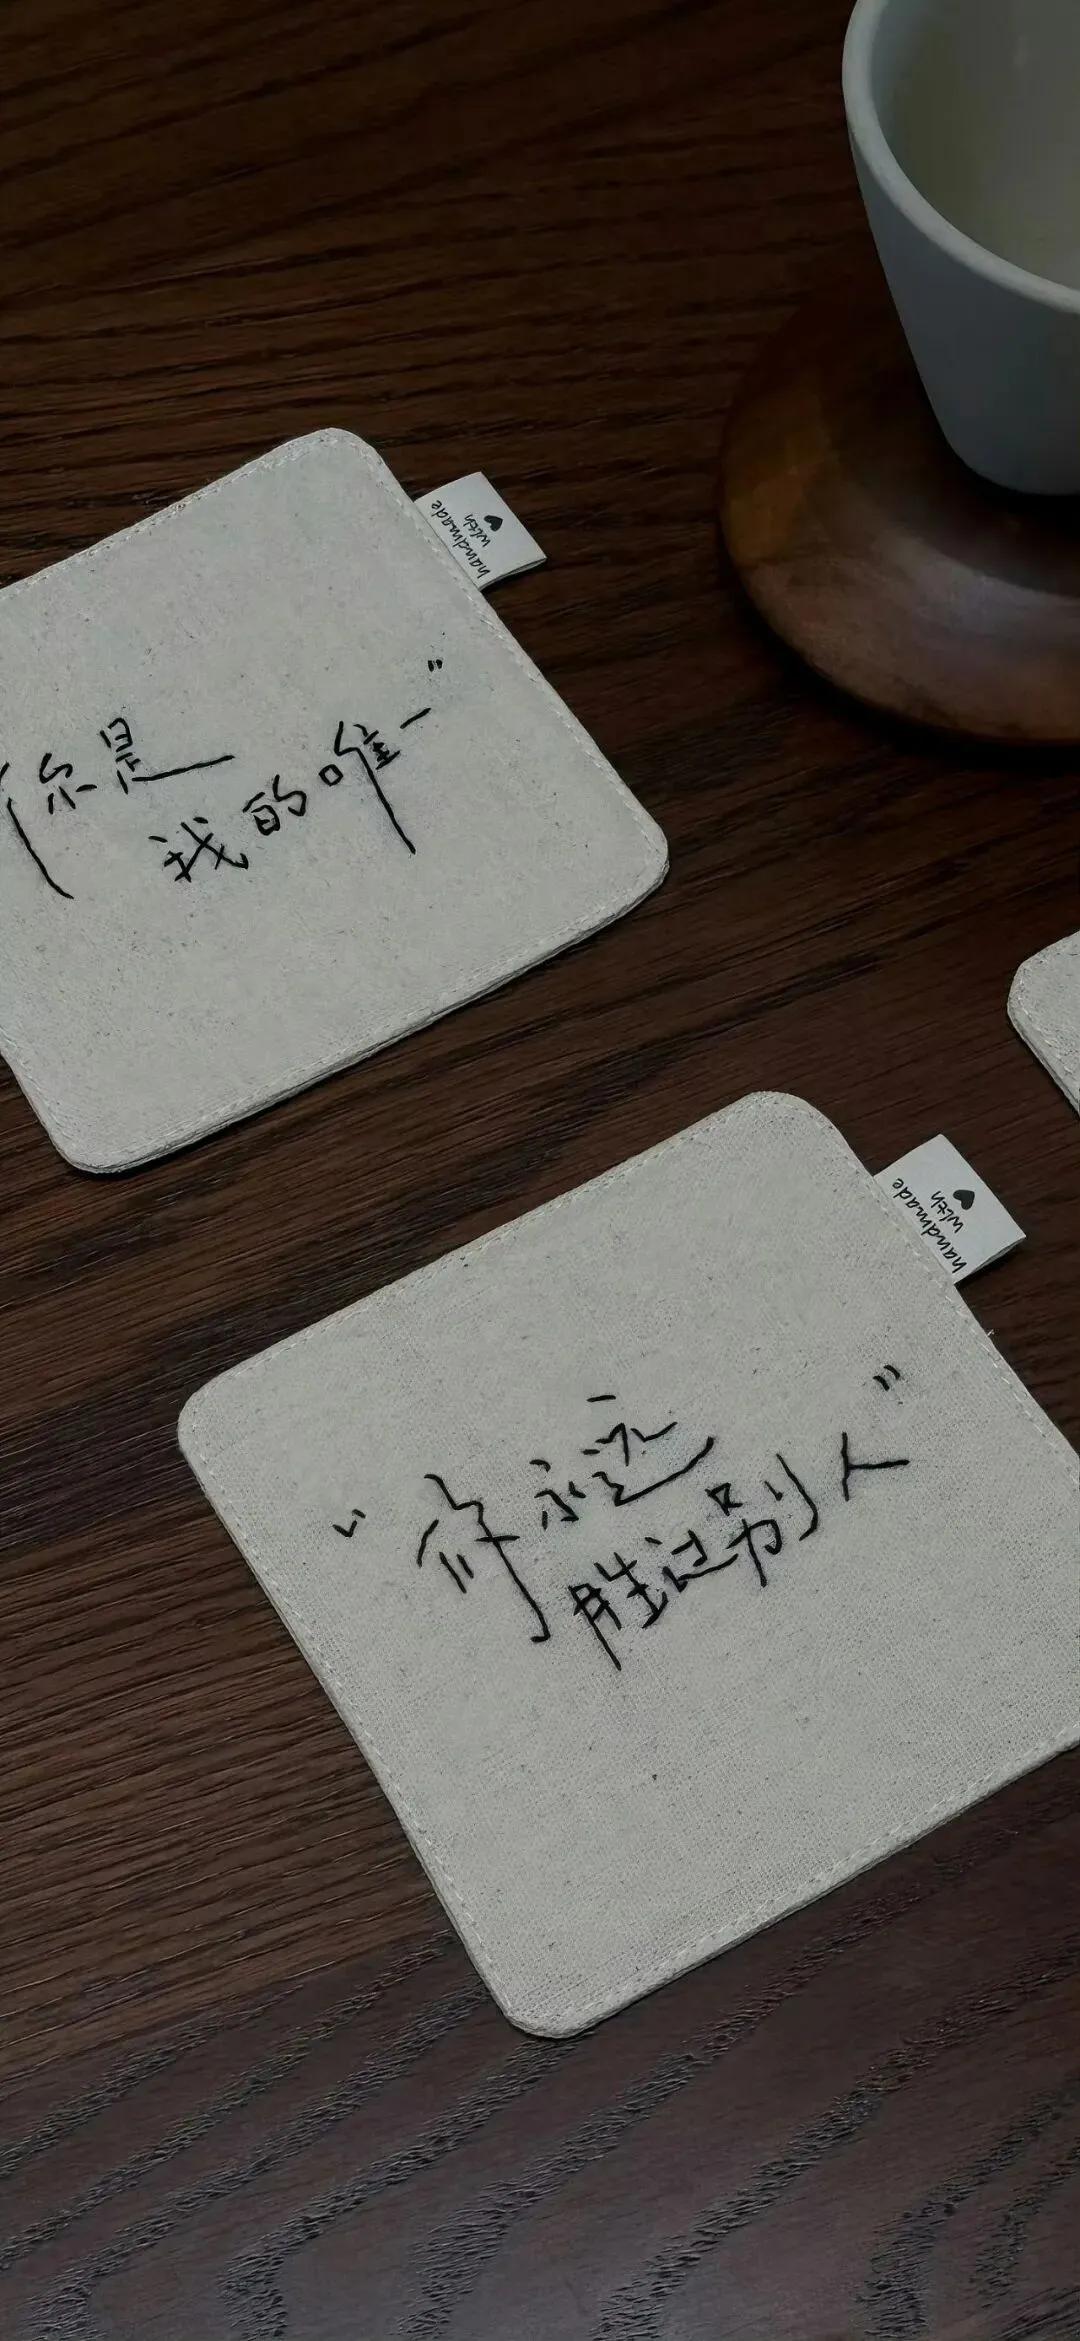 handmade
with ♥
你是
我的唯一"
handmade
with ♥
"你永远
胜过别人"